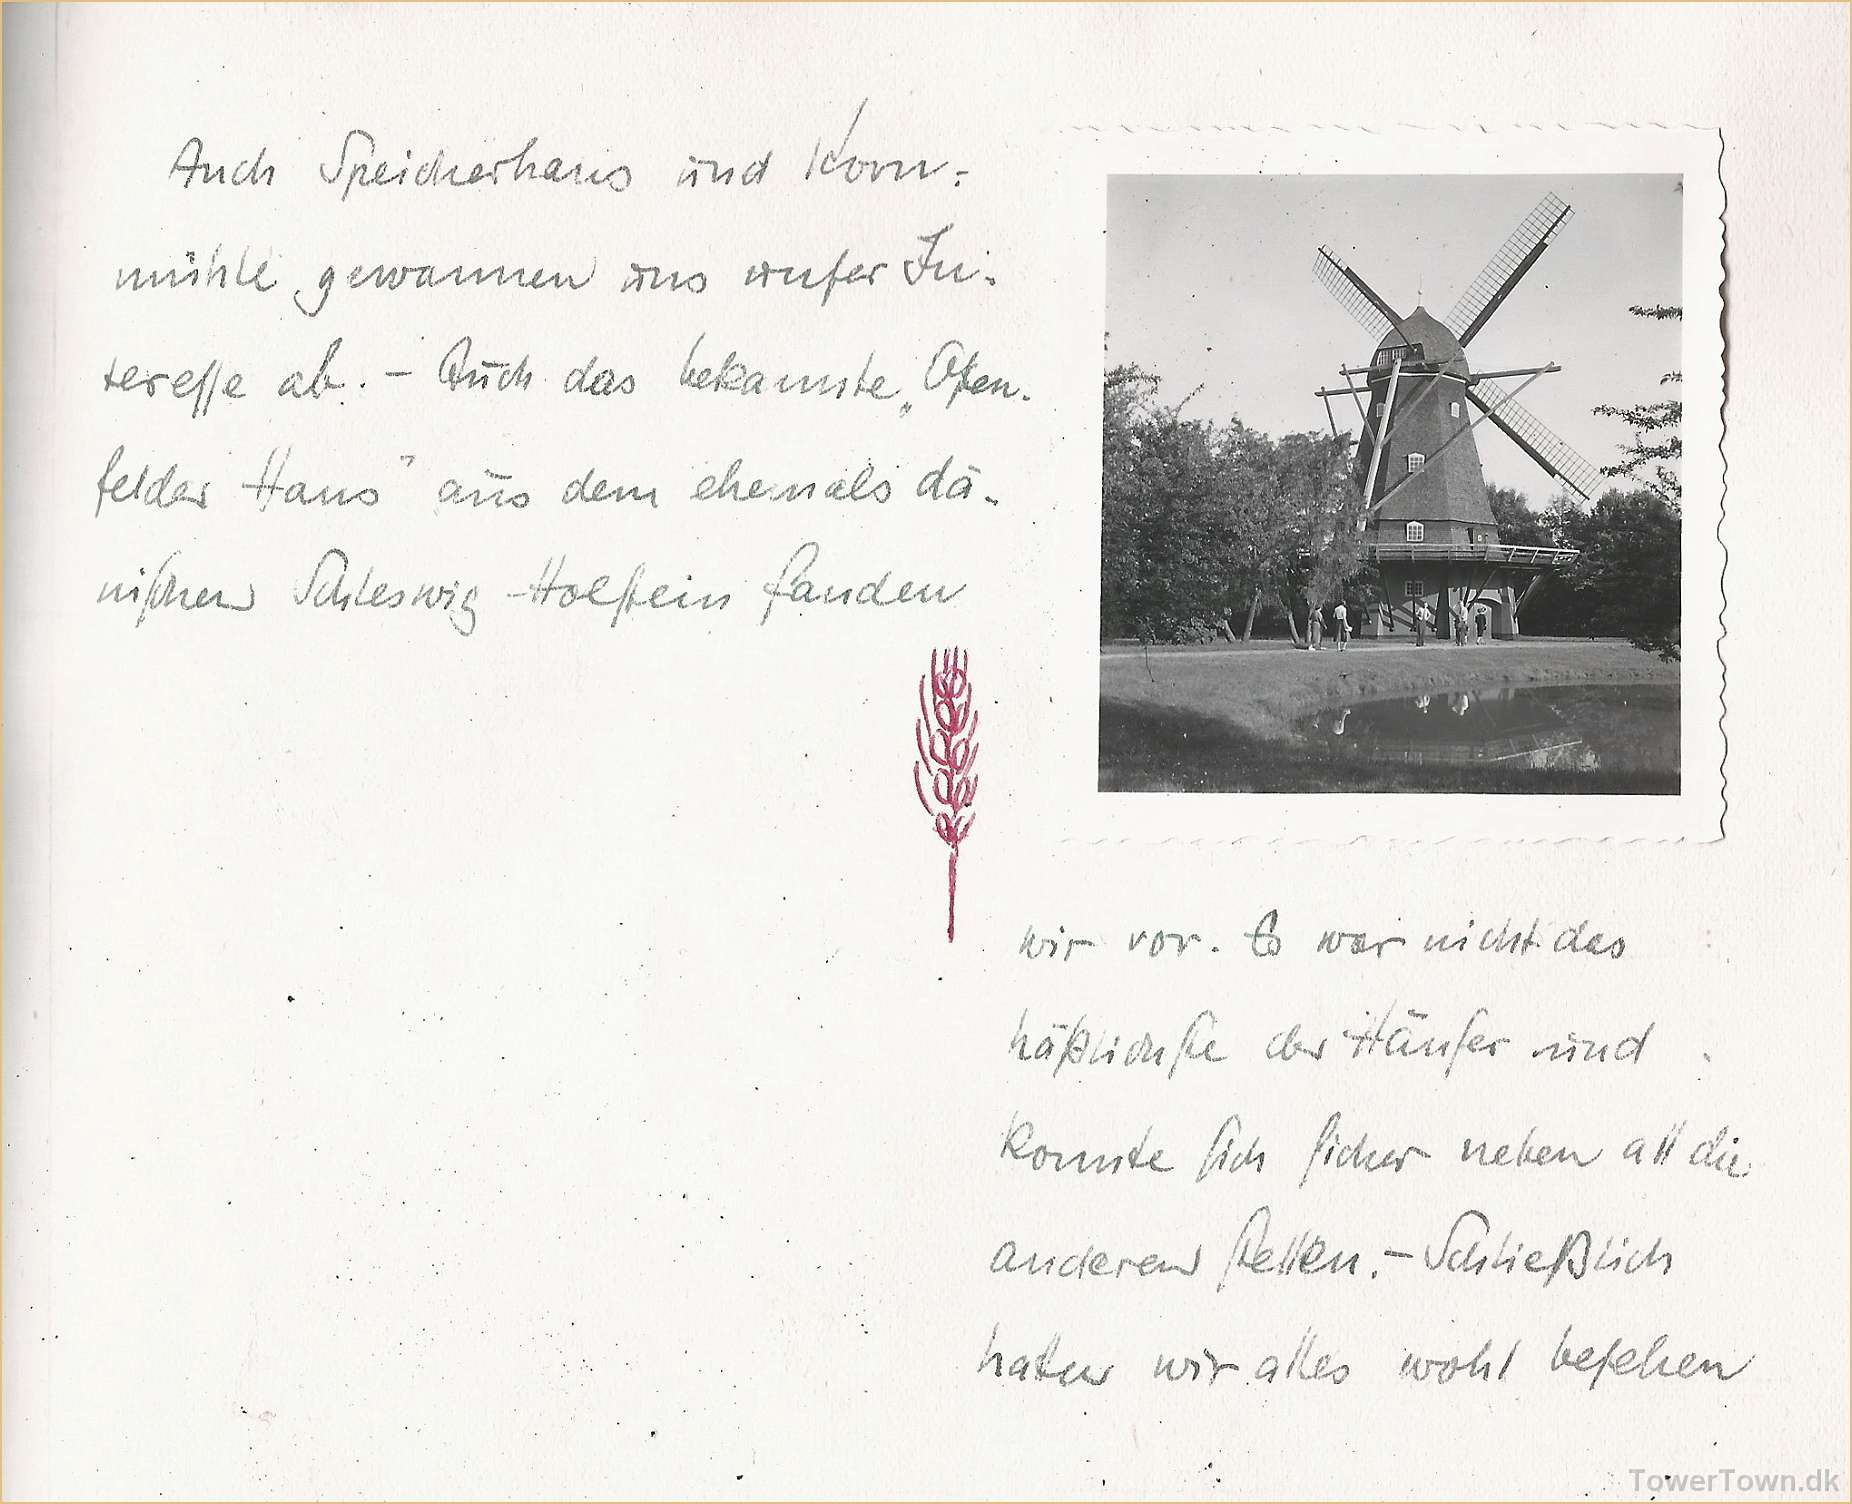 Auch Speicherhaus und Korn-
mühle gewannen uns unser In-
teresse ab. - Auch das bekannte „Osten-
felder Haus" aus dem ehemals dä-
nischen Schleswig-Holstein fanden
wir vor. Es war nicht das
häßlichste der Häuser und
konnte sich sicher neben all die
anderen stellen. - Schließlich
hatten wir alles wohl besehen
TowerTown.dk